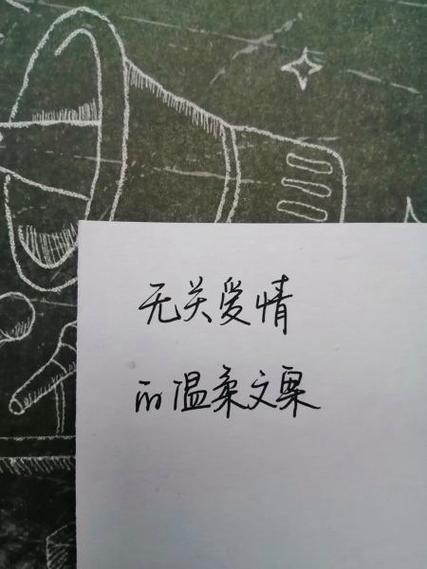 无关爱情
的温柔文案